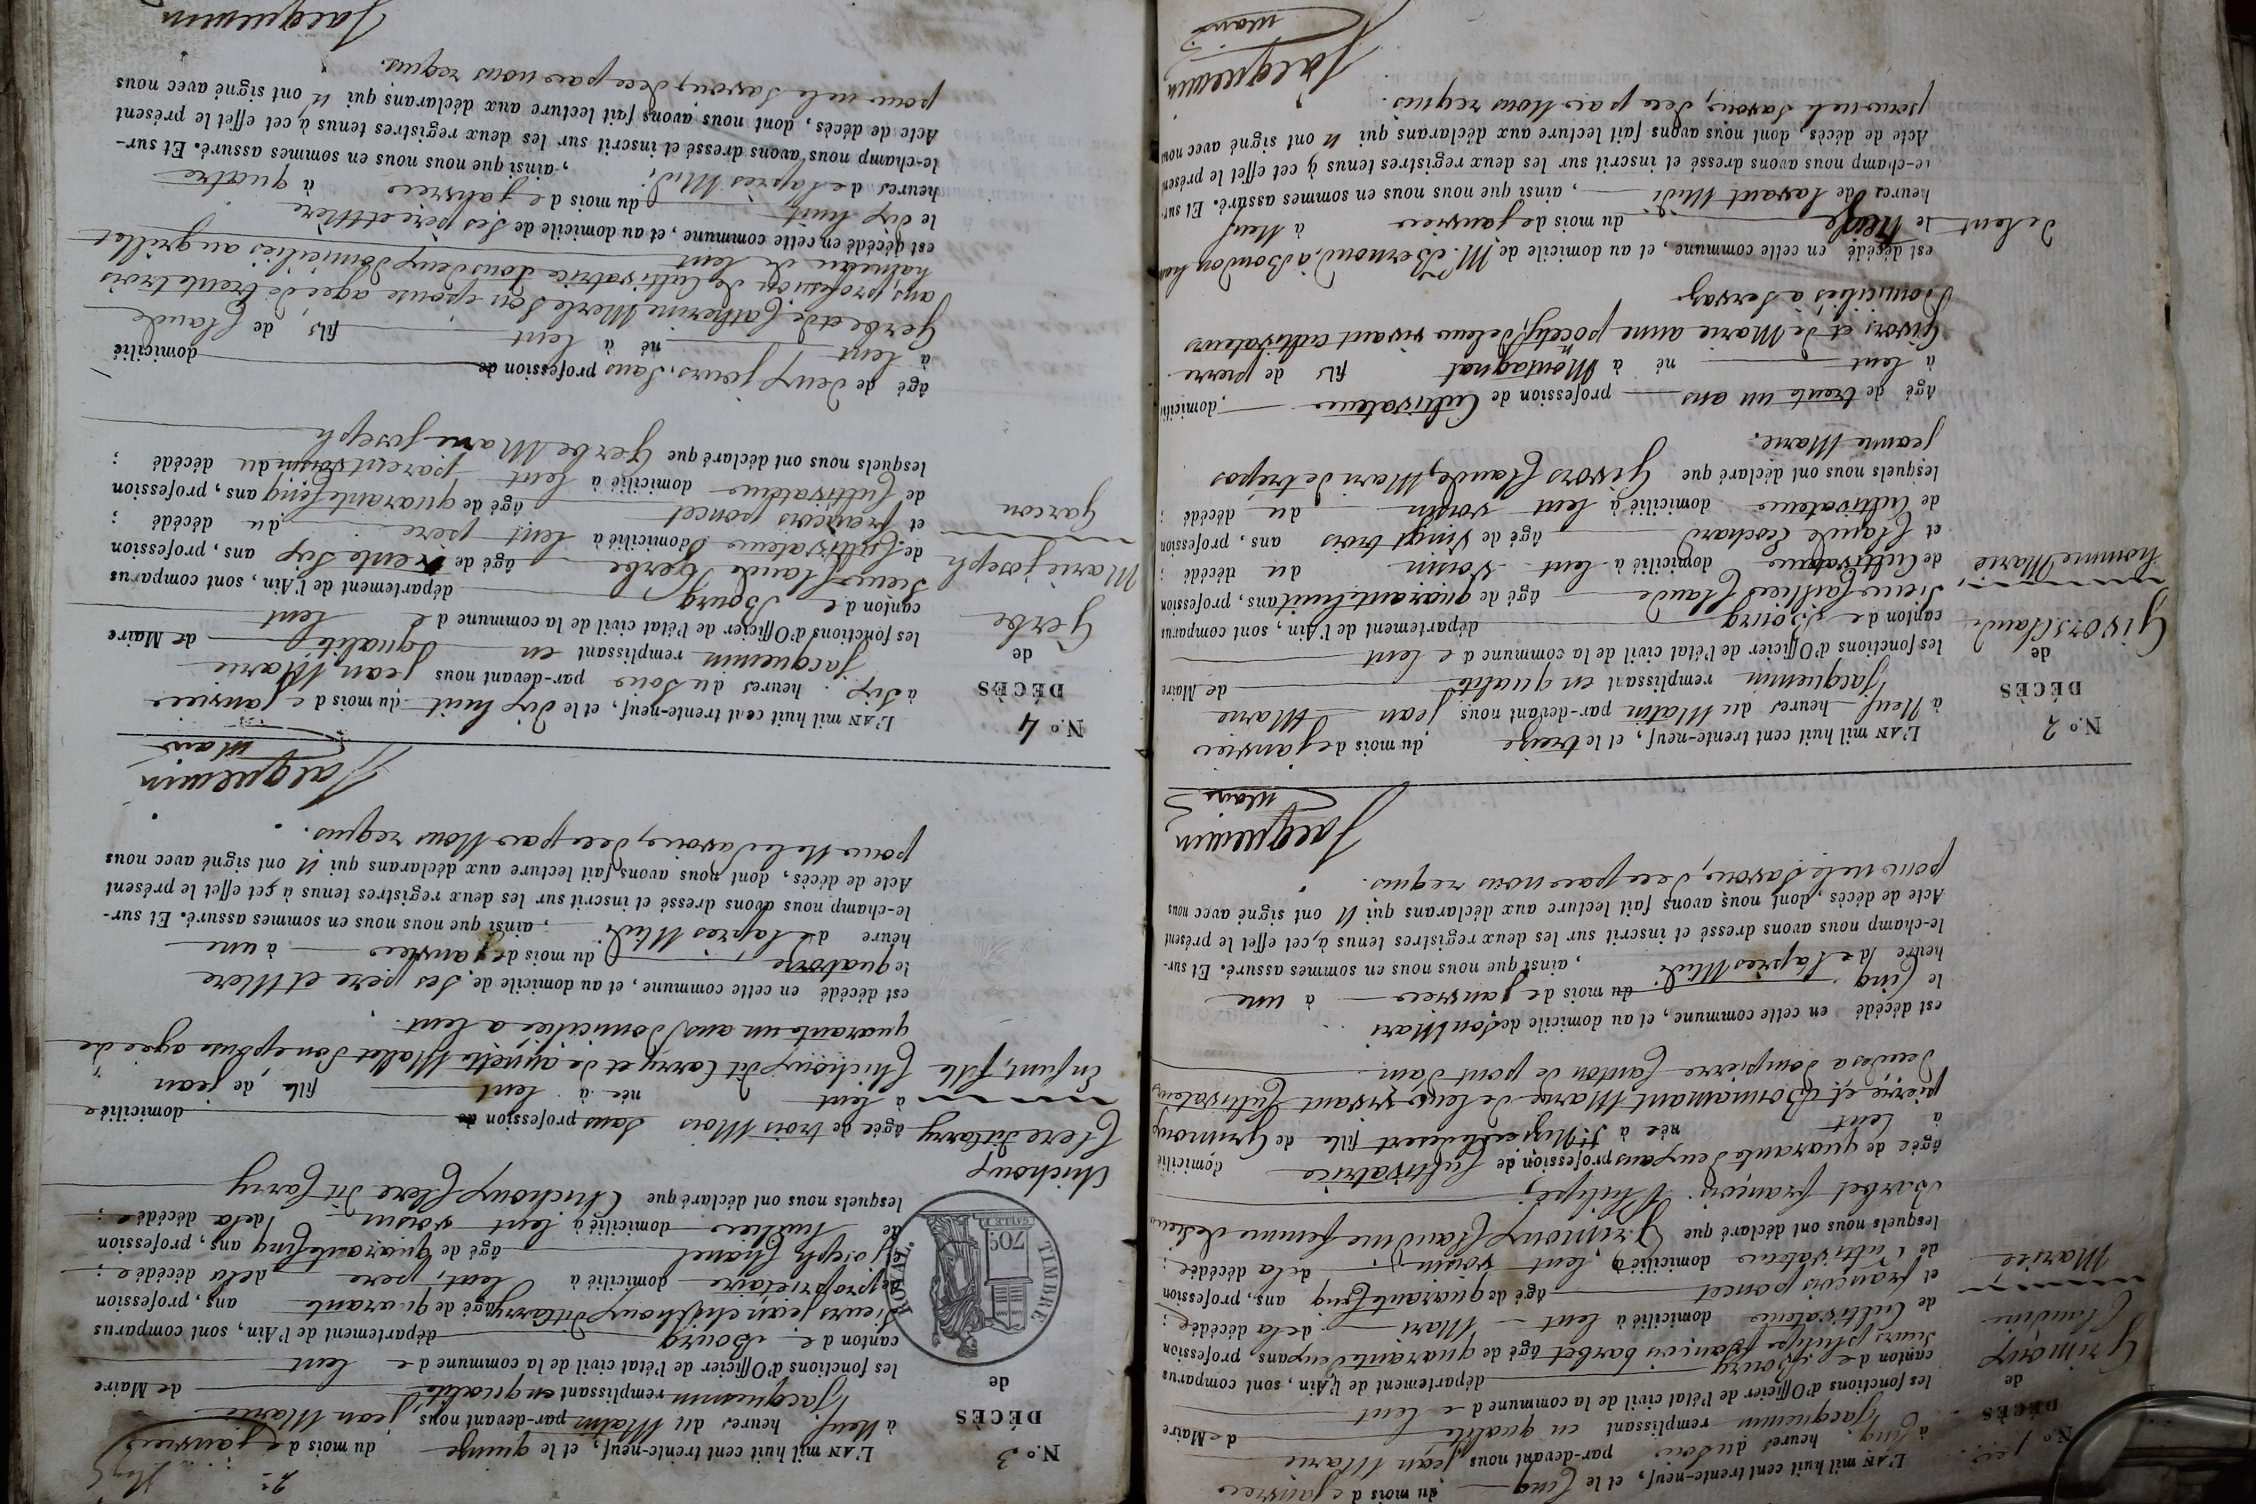 N.º 1.er
DÉCÈS
de
Grimoux
Claudine
Mariée
L'AN mil huit cent trente-neuf, et le Cinq du mois de janvier
à Cinq heures du Soir par-devant nous jean Marie
Jacquemin remplissant en qualité de Maire
les fonctions d'Officier de l'état civil de la commune de lent
canton de Bourg département de l'Ain, sont comparus
sieurs philipe françois barbet âgé de quarante deux ans, profession
de Cultivateur domicilié à lent Mari de la décédée ;
et françois poncet âgé de quarante Cinq ans, profession
de Cultivateur domicilié à lent voisin de la décédée ;
lesquels nous ont déclaré que Grimoux Claudine femme de Sieur
Barbet françois Philipe,
âgée de quarante deux ans profession de Cultivatrice domicilié
à lent née à St. Nizier le desert fille de Grimoux
pierre, et Bonnamant Marie de leur vivant Cultivateurs
Canton de pont d'ain
est décédé en cette commune, et au domicile de Son Mari
le Cinq du mois de janvier à une
heure de l'après Midi , ainsi que nous nous en sommes assuré. Et sur-
le-champ nous avons dressé et inscrit sur les deux registres tenus à cet effet le présent
Acte de décès, dont nous avons fait lecture aux déclarans qui n'ont signé avec nous
pour ne le Savoir, de ce par nous requis.
Jacquemin
Maire
N.º 2
DÉCÈS
de
Givors Claude
homme Marié
L'AN mil huit cent trente-neuf, et le treize du mois de janvier
à Neuf heures du Matin par-devant nous jean Marie
Jacquemin remplissant en qualité de Maire
les fonctions d'Officier de l'état civil de la commune de lent
canton de Bourg département de l'Ain, sont comparus
Sieurs Claude âgé de quarante huit ans, profession
de Cultivateur domicilié à lent voisin du décédé ;
et Claude Cochard âgé de Vingt trois ans, profession
de Cultivateur domicilié à lent voisin du décédé ;
lesquels nous ont déclaré que Givors Claude, Mari de trépos
jeanne Marie.
âgé de trente un ans profession de Cultivateur , domicilié
à lent né à Montagnat fils de pierre
Givors et de Marie anne de leur vivant cultivateurs
Domiciliés à Servas
est décédé en cette commune, et au domicile de M. Bernoud, à Boudon
de lent le treize du mois de janvier à Neuf
heures de l'avant Midi , ainsi que nous nous en sommes assuré. Et sur-
le-champ nous avons dressé et inscrit sur les deux registres tenus à cet effet le présent
Acte de décès, dont nous avons fait lecture aux déclarans qui n'ont signé avec nous
pour ne le Savoir, de ce par Nous requis.
Jacquemin
Maire
2e
N.º 3
DÉCÈS
de
TIMBRE ROYAL.
70c.
Chichoux
Clere dit Carry
Enfant, fille
L'AN mil huit cent trente-neuf, et le quinze du mois de janvier
à Neuf heures du Matin par-devant nous, jean Marie
Jacquemin remplissant en qualité de Maire
les fonctions d'Officier de l'état civil de la commune de lent
canton de Bourg département de l'Ain, sont comparus
Sieurs jean chichoux dit Carry âgé de quarante ans, profession
de proprietaire domicilié à lent, pere de la décédée ;
et joseph Chanel âgé de quarante Cinq ans, profession
de tuilier domicilié à lent voisin de la décédée ;
lesquels nous ont déclaré que Chichoux Clere dit Carry
âgée de trois Mois Sans profession de domiciliée
à lent née à lent fille de jean
Chichoux dit Carry et de annette Malet Son épouse agée de
quarante un ans, domiciliée à lent.
est décédé en cette commune, et au domicile de Ses pere et Mere
le quatorze du mois de janvier à une
heure de l'après Midi , ainsi que nous nous en sommes assuré. Et sur-
le-champ nous avons dressé et inscrit sur les deux registres tenus à cet effet le présent
Acte de décès, dont nous avons fait lecture aux déclarans qui n'ont signé avec nous
pour Ne le Savoir, de ce par Nous requis.
Jacquemin
Maire
N.º 4
DÉCÈS
de
Gerbe
Marie joseph
Garcon
L'AN mil huit cent trente-neuf, et le dix huit du mois de janvier
à Six heures du Soir par-devant nous jean Marie
Jacquemin remplissant en qualité de Maire
les fonctions d'Officier de l'état civil de la commune de lent
canton de Bourg département de l'Ain, sont comparus
Sieurs Claude Gerbe âgé de trente Six ans, profession
de Cultivateur domicilié à lent pere du décédé ;
et françois poncet âgé de quarante Cinq ans, profession
de Cultivateur domicilié à lent parent voisin du décédé ;
lesquels nous ont déclaré que Gerbe Marie joseph
âgé de deux jours, Sans profession de domicilié
à lent né à lent fils de Claude
Gerbe et de Catherine Merle Son épouse agée de trente trois
ans, profession de Cultivatrice tous deux domiciliés au grillet
hameau de lent
est décédé en cette commune, et au domicile de Ses pere et Mere
le dix huit du mois de janvier à quatre
heures de l'après Midi , ainsi que nous nous en sommes assuré. Et sur-
le-champ nous avons dressé et inscrit sur les deux registres tenus à cet effet le présent
Acte de décès, dont nous avons fait lecture aux déclarans qui n'ont signé avec nous
pour ne le Savoir, de ce par nous requis.
Jacquemin